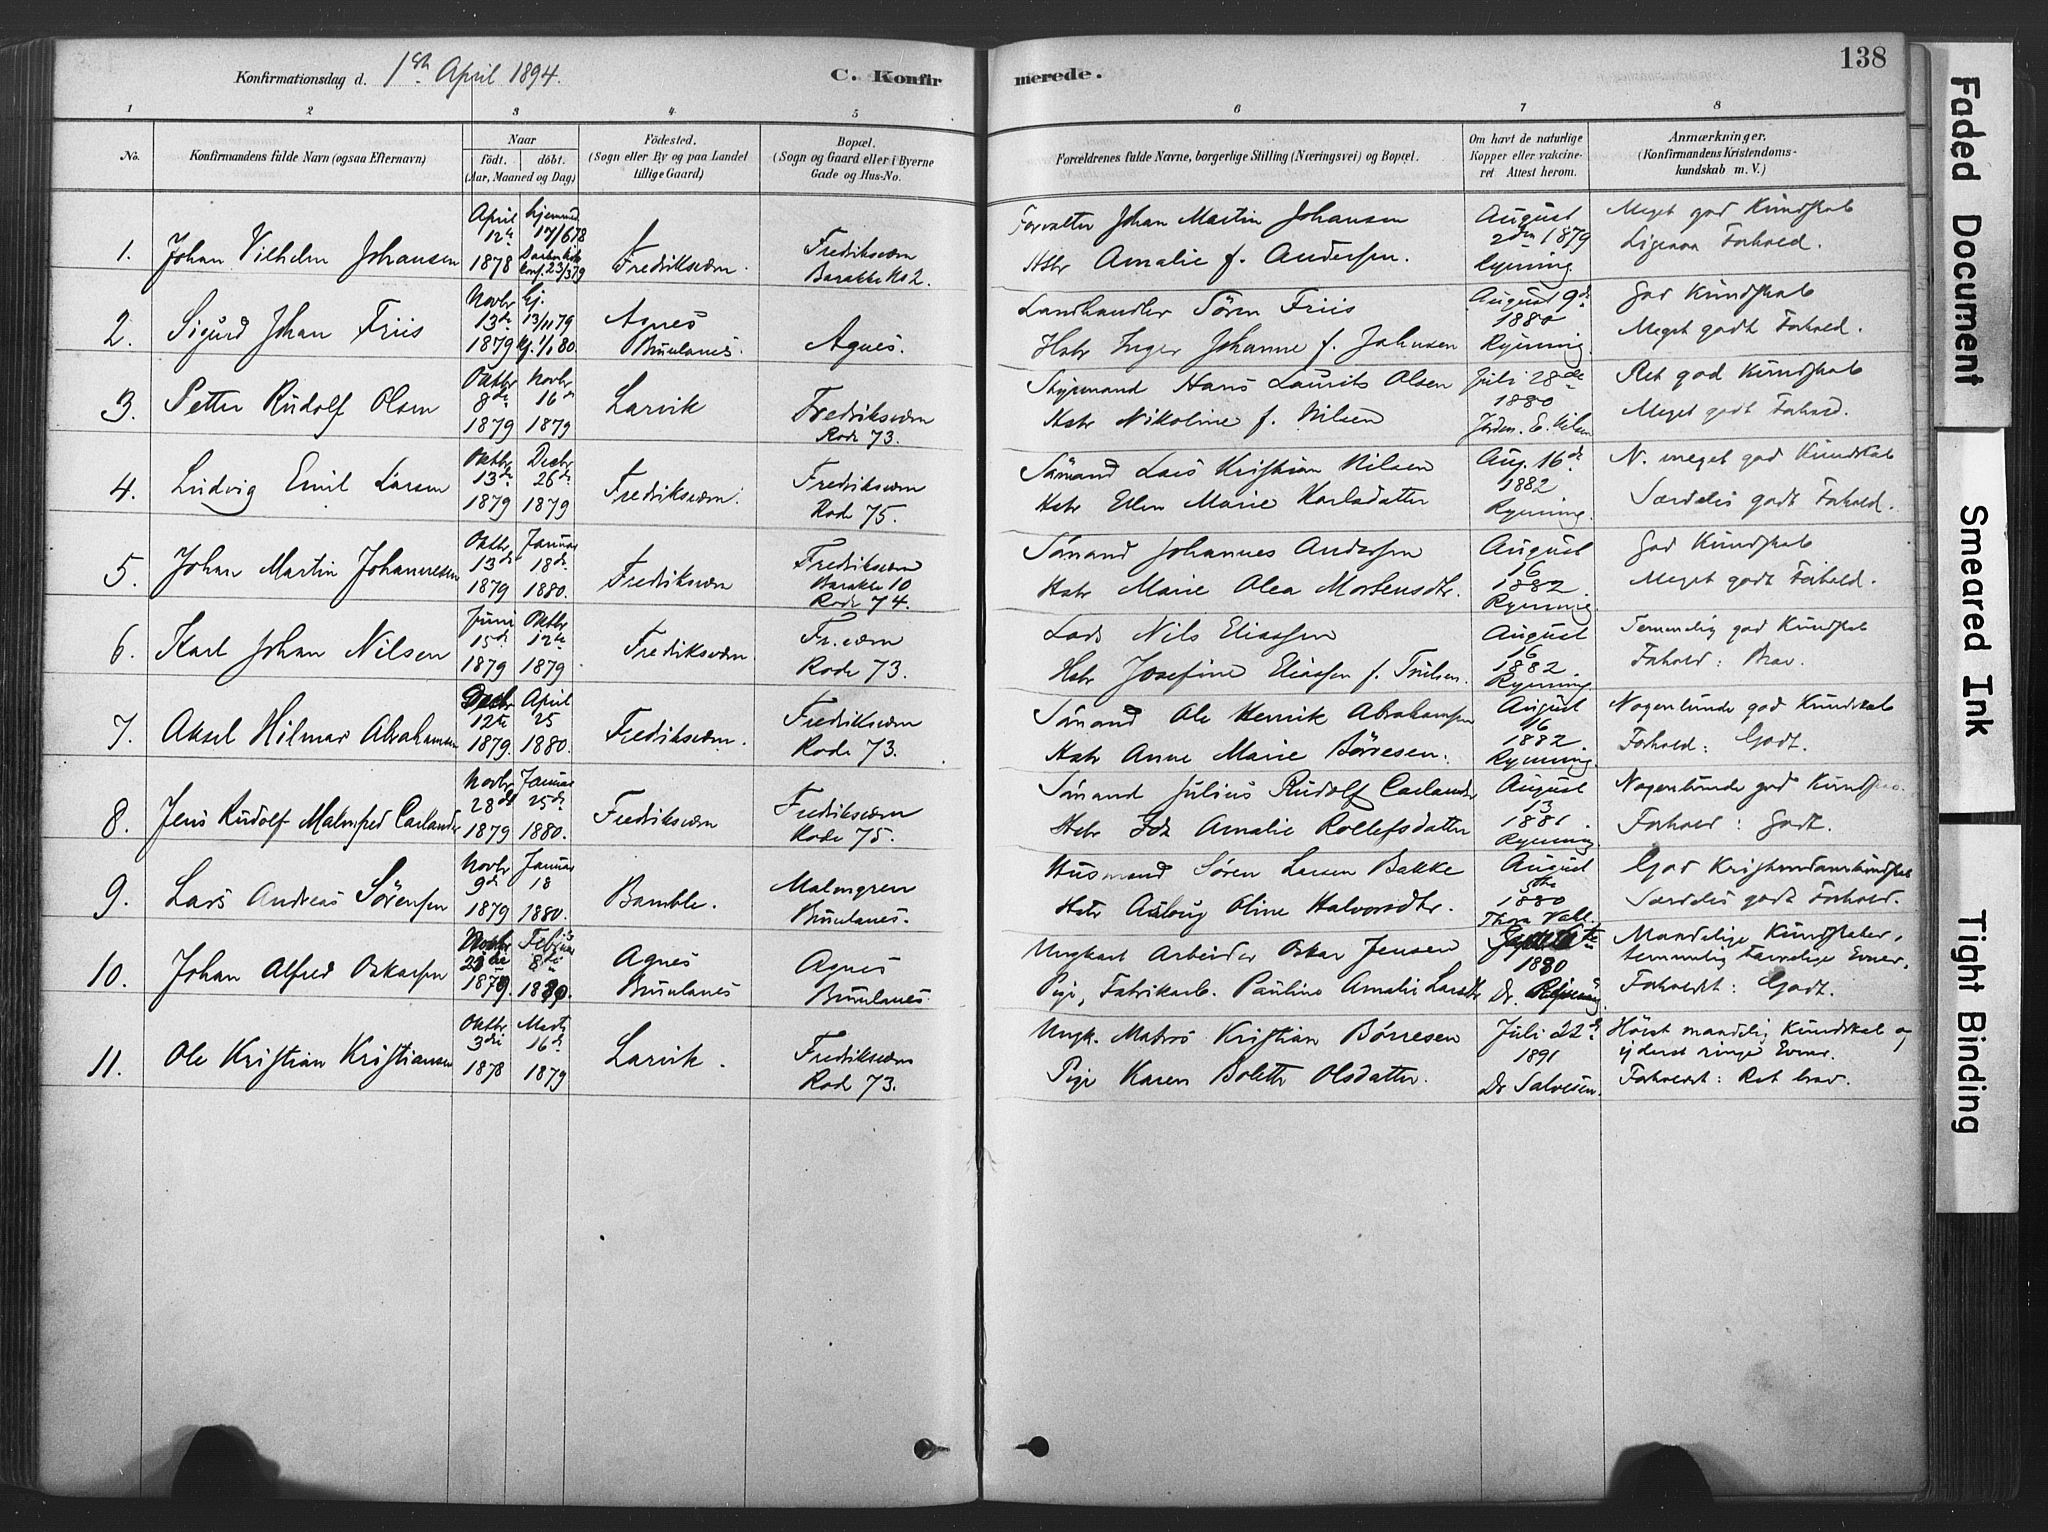 Konfirmationsdag d. 1ste April 1894.
C. Konfirmerede.
138
1 2 3 4 5 6 7 8
No.
Konfirmandens fulde Navn (ogsaa Efternavn)
Naar
Födt. döbt.
(Aar, Maaned og Dag)
Födested.
(Sogn eller By og paa Landet
tillige Gaard)
Bopæl.
(Sogn og Gaard eller i Byerne
Gade og Hus-No.
Forældrenes fulde Navne, borgerlige Stilling (Næringsvei) og Bopæl.
Om havt de naturlige
Kopper eller vakcine-
ret Attest herom.
Anmærkninger.
(Konfirmandens Kristendoms-
kundskab m. V.)
1. Johan Vilhelm Johansen
April 12te 1878
hjemmed. 17/6 78
konf. 23/3 79
Fredriksværn.
Fredriksværn
Barakke No 2.
Forvalter Johan Martin Johansen
Hstr Amalie f. Andersen.
August
2den 1879
Rynning
Meget god Kundskab
Ligesaa Forhold.
2. Sigurd Johan Friis
Novbr 13de 1879
Hj. 13/11 79
Kj. 1/1 80.
Agnes
Brunlanes.
Agnes.
Landhandler Sören Friis
Hstr Inger Johanne f. Johnsen
August 9de
1880
Rynning.
God Kundskab
Meget godt Forhold.
3. Petter Rudolf Olsen
Oktbr 8de 1879
Novbr 16de 1879
Larvik
Fredriksværn
Rode 73.
Styrmand Hans Laurits Olsen
Hstr Nikoline f. Nilsen
Juli 28de
1880
Jordm. E. Nilsen
Ret god Kundskab
Meget godt Forhold.
4. Ludvig Emil Larsen
Oktbr 13de 1879
Decbr 26de 1879
Fredriksværn.
Fredriksværn
Rode 75.
Sömand Lars Kristian Nilsen
Hstr Ellen Marie Karlsdatter
Aug. 16de
1882
Rynning.
N. meget god Kundskab
Særdeles godt Forhold.
5. Johan Martin Johannesen
Oktbr 13de 1879
Januar 18de 1880.
Fredriksværn
Fredriksværn
Barakke 10
Rode 74.
Sömand Johannes Andersen
Hstr Marie Olea Mortensdtr.
August
16
1882
Rynning
God Kundskab
Meget godt Forhold.
6. Karl Johan Nilsen
Juni 15de 1879
Oktbr 12te 1879
Fredriksværn
Fr.værn
Rode 73.
Lods Nils Eliassen
Hstr Josefine Eliassen f. Truelsen.
August
16
1882
Rynning
Temmelig god Kundskab
Forhold: Brav.
7. Aksel Hilmar Abrahamsen
Decbr 12te 1879
April 25 1880.
Fredriksværn.
Fredriksværn
Rode 73.
Sömand Ole Henrik Abrahamsen
Hstr Anne Marie Börresen.
August
16
1882
Rynning.
Nogenlunde god Kundskab
Forhold: Godt.
8. Jens Rudolf Malmfred Carlander
Novbr 28de 1879
Januar 25de 1880.
Fredriksværn
Fredriksværn
Rode 75.
Sömand Julius Rudolf Carlander
Hstr Ida Amalie Rollefsdatter
August
13
1881
Rynning
Nogenlunde god Kundskab.
Forhold: Godt.
9. Lars Andreas Sörensen
Novbr 9de 1879
Januar 18 1880.
Bamble.
Malmgren
Brunlanes.
Husmand Sören Larsen Bakke
Hstr Asloug Oline Halvorsdtr.
August
5te
1880
Thora Vall.
God Kristendomskundskab
Særdeles godt Forhold.
10. Johan Alfred Oskarsen
Novbr 1879
Februar 8de 1880.
Agnes
Brunlanes
Agnes
Brunlanes
Ungkarl Arbeider Oskar Jensen
Pige, Fabrikarb. Pauline Amalie Larsdtr
1880
Dr. Rynning.
Mandelige Kundskaber,
temmelig Evner.
Forholdet: Godt.
11. Ole Kristian Kristiansen
Oktbr 3die 1878
Marts 16de 1879
Larvik.
Fredriksværn
Rode 73.
Ungk. Matros Kristian Börresen
Pige Karen Bolette Olsdatter.
Juli 22de
1891
Dr Salvesen.
Höist mandelig Kundskab og
yderst ringe Evner.
Forholdet: Ret brav.
Faded Document
Smeared Ink
Tight Binding